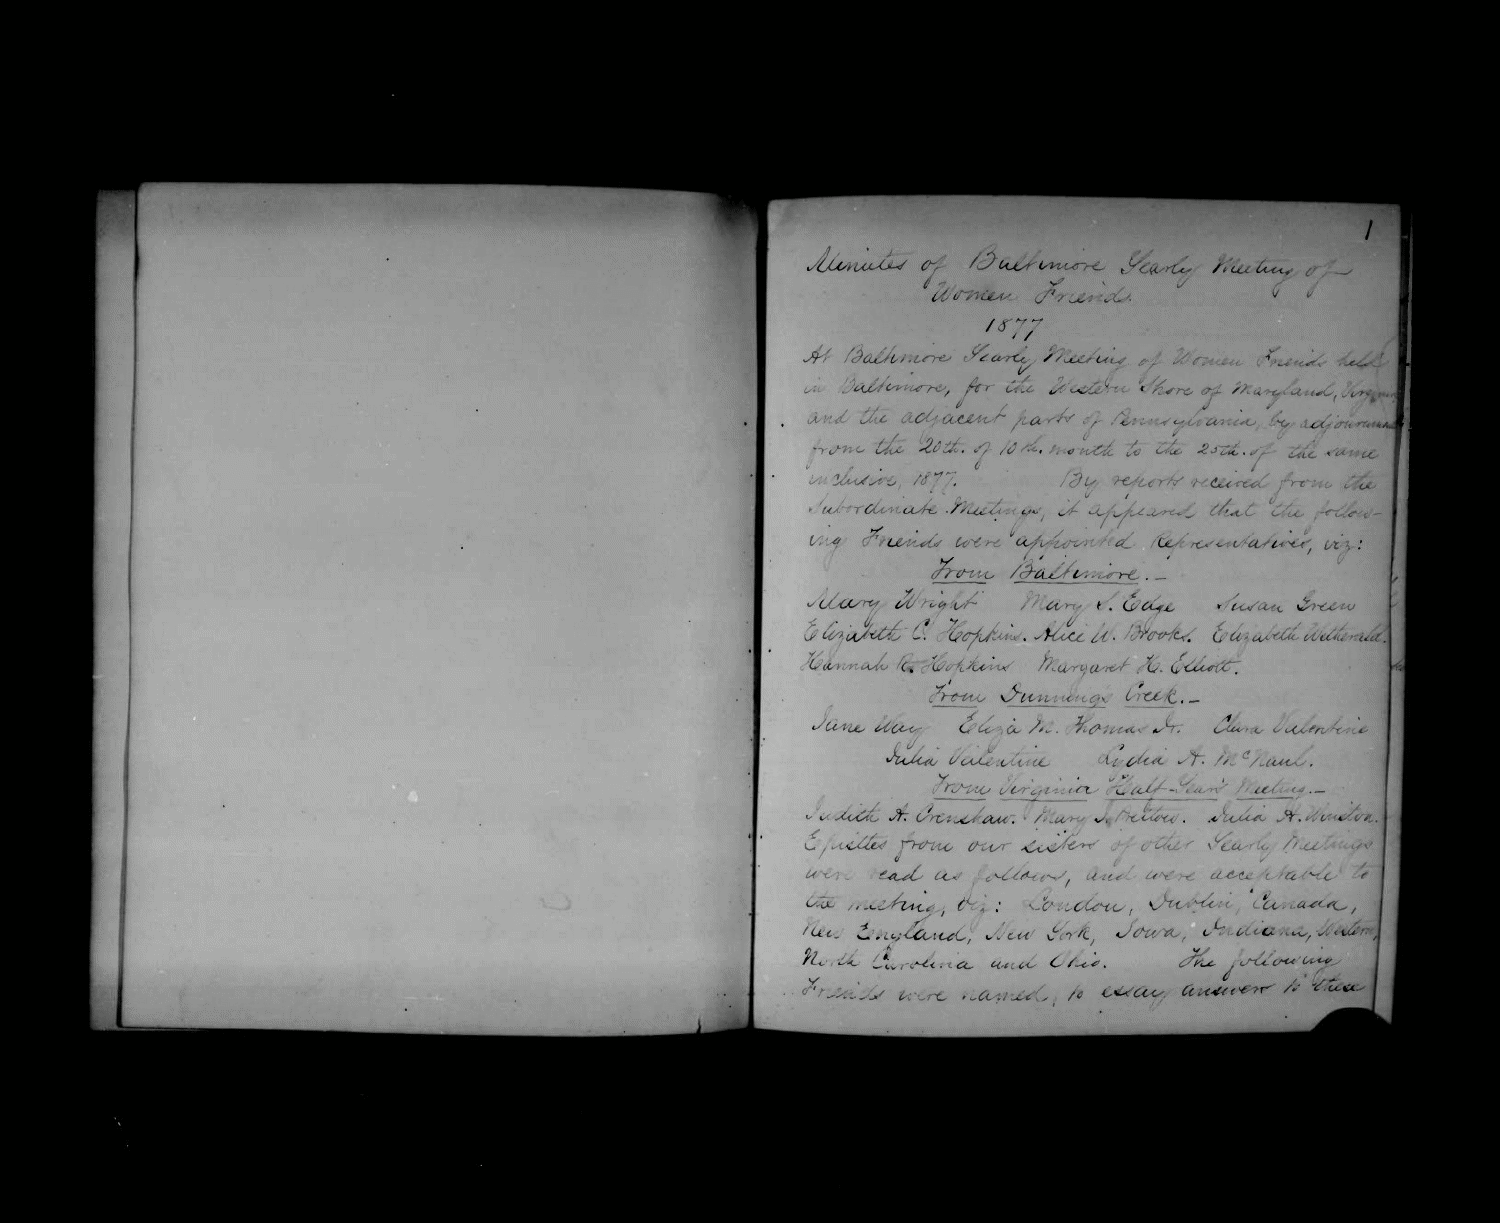 1
Minutes of Baltimore Yearly Meeting of
Women Friends.
1877
At Baltimore Yearly Meeting of Women Friends held
in Baltimore, for the Western Shore of Maryland, Virginia
and the adjacent parts of Pennsylvania, by adjournment
from the 20th. of 10th. month to the 25th. of the same
inclusive, 1877. By reports received from the
Subordinate Meetings, it appeared that the follow-
ing Friends were appointed Representatives, viz:
From Baltimore.—
Mary Wright Mary S. Edge Susan Green
Elizabeth C. Hopkins. Alice W. Brooks. Elizabeth Wetherald.
Hannah Hopkins Margaret H. Elliott.
From Dunning's Creek.—
Jane Way Eliza M. Thomas Jr. Clara Valentine
Julia Valentine Lydia A. McNaul.
From Virginia Half-Year's Meeting.—
Judith A. Crenshaw. Mary Julia H. Winston.
Epistles from our sisters of other Yearly Meetings
were read as follows, and were acceptable to
the meeting, viz: London, Dublin, Canada,
New England, New York, Iowa, Indiana, Western,
North Carolina and Ohio. The following
Friends were named, to essay answers to these